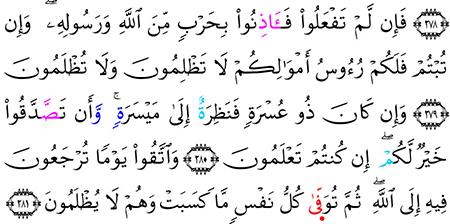 ﴿٢٧٨﴾ فَإِن لَّمْ تَفْعَلُوا۟ فَـَٔاذِنُوا۟ بِحَرْبٍ مِّنَ ٱللَّهِ وَرَسُولِهِۦ ۖ وَإِن
تُبْتُمْ فَلَكُمْ رُءُوسُ أَمْوَٰلِكُمْ لَا تَظْلِمُونَ وَلَا تُظْلَمُونَ
﴿٢٧٩﴾ وَإِن كَانَ ذُو عُسْرَةٍ فَنَظِرَةٌ إِلَىٰ مَيْسَرَةٍ ۚ وَأَن تَصَّدَّقُوا۟
خَيْرٌ لَّكُمْ ۖ إِن كُنتُمْ تَعْلَمُونَ ﴿٢٨٠﴾ وَٱتَّقُوا۟ يَوْمًا تُرْجَعُونَ
فِيهِ إِلَى ٱللَّهِ ۖ ثُمَّ تُوَفَّىٰ كُلُّ نَفْسٍ مَّا كَسَبَتْ وَهُمْ لَا يُظْلَمُونَ ﴿٢٨١﴾